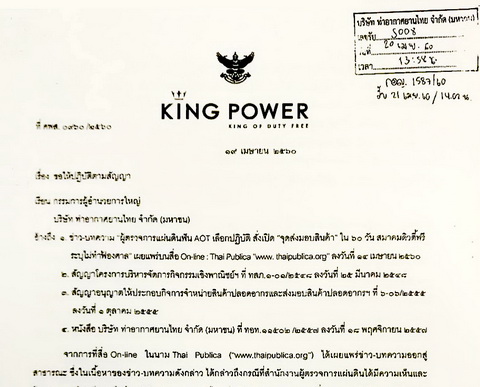 บริษัท ท่าอากาศยานไทย จำกัด (มหาชน)
เลขรับ 5008
วันที่ 20 เม.ย. 60
เวลา 13:58 น.
กอญ. 1587/60
21 เม.ย. 60 / 14.02 น.
KING POWER
KING OF DUTY FREE
ที่ คพส. ๐๙๖๐/๒๕๖๐
๑๙ เมษายน ๒๕๖๐
เรื่อง ขอให้ปฏิบัติตามสัญญา
เรียน กรรมการผู้อำนวยการใหญ่
บริษัท ท่าอากาศยานไทย จำกัด (มหาชน)
อ้างถึง ๑. ข่าว-บทความ "ผู้ตรวจการแผ่นดินฟัน AOT เลือกปฏิบัติ สั่งเปิด "จุดส่งมอบสินค้า" ใน ๖๐ วัน สมาคมดิวตี้ฟรี
ระบุไม่ทำฟ้องศาล" เผยแพร่บนสื่อ On-line : Thai Publica "www. thaipublica.org" ลงวันที่ ๑๔ เมษายน ๒๕๖๐
๒. สัญญาโครงการบริหารจัดการกิจกรรมเชิงพาณิชย์ฯ ที่ ทสภ.๑-๐๘/๒๕๔๘ ลงวันที่ ๒๕ มีนาคม ๒๕๔๘
๓. สัญญาอนุญาตให้ประกอบกิจการจำหน่ายสินค้าปลอดอากรและส่งมอบสินค้าปลอดอากรฯ ที่ ๖-๐๖/๒๕๕๕
ลงวันที่ ๑ ตุลาคม ๒๕๕๕
๔. หนังสือ บริษัท ท่าอากาศยานไทย จำกัด (มหาชน) ที่ ทอท.๑๑๕๐๒/๒๕๕๗ ลงวันที่ ๑๘ พฤศจิกายน ๒๕๕๗
จากการที่สื่อ On-line ในนาม Thai Publica ("www.thaipublica.org") ได้เผยแพร่ข่าว-บทความออกสู่
สาธารณะ ซึ่งในเนื้อหาของข่าว-บทความดังกล่าว ได้กล่าวถึงกรณีที่สำนักงานผู้ตรวจการแผ่นดินได้มีความเห็นและ